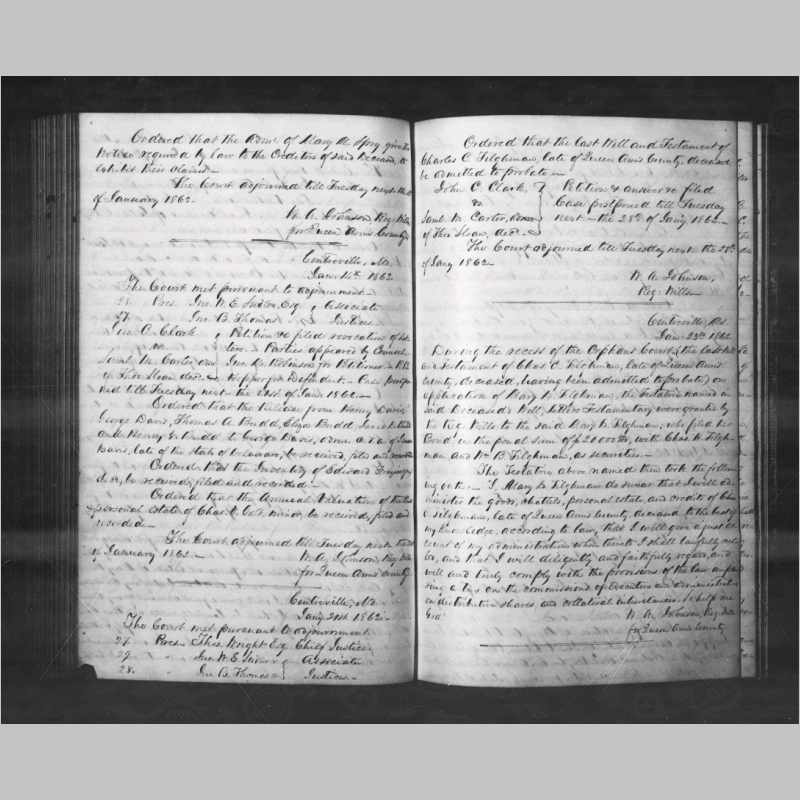 Ordered that the Admr of Mary M. Spry give the
Notice required by law to the Creditors of said Deceased, to
exhibit their claims.
The Court adjourned till Tuesday next the
of January 1862.
W. A. Johnson, Reg. Wills
for Queen Anns County
Centreville, Md.
Jany 14th 1862
The Court met pursuant to adjournment.
28. Pres. Jno. W. E. Sudler, Esq. Associate
27. " Jno. B. Thomas Justices
Jno. C. Clark Petition &c filed revocation of
vs Parties appeared by Counsel
Saml. M. Carter Jno. M. Robinson for Petitioner
of Thos Sloan, decd. for Defendant. Case postpo
ned till Tuesday next the 21st of Jany 1862.
Ordered that the Release from Henry Davis
George Davis, Thomas A. Budd, Eliza Budd,
and Henry G. Budd to George Davis, admr
Davis, late of the State of Delaware, be received, filed and recorded
Ordered that the Inventory of Edward
be received, filed and recorded.
Ordered that the Annual Valuation of the
personal estate of Chas. minor, be received, filed and
recorded.
The Court adjourned till Tuesday next the 21st
of January 1862.
W. A. Johnson, Reg. Wills
for Queen Anns County
Centreville, Md.
Jany 21st 1862.
The Court met pursuant to adjournment.
27. Pres. Thos. Wright Esq. Chief Justice.
29. " Jno. W. E. Sudler Associate
28. " Jno. B. Thomas Justices.
Ordered that the last Will and Testament of
Charles C. Tilghman, late of Queen Anns County, deceased
be admitted to probate.
John C. Clark Petition & answer &c filed
vs Case postponed till Tuesday
Saml. M. Carter, next the 28th of Jany 1862.
of Thos Sloan, decd.
The Court adjourned till Tuesday next the 28th
of Jany 1862.
W. A. Johnson,
Reg. Wills
Centreville, Md.
Jany 23d 1862
During the recess of the Orphans Court, (the last Will
& Testament of Chas C. Tilghman, late of Queen Anns
County, deceased, having been admitted to probate) on
application of Mary L. Tilghman, the Testatrix named in
said Deceased's Will, Letters Testamentary were granted by
the Reg. Wills to the said Mary L. Tilghman, who filed her
Bond in the penal sum of $20000, with Chas. H. Tilgh-
man and Wm. B. Tilghman, as securities.
The Testatrix above named then took the follow-
ing oath. I Mary L. Tilghman do swear that I will ad-
minister the goods, chattels, personal estate and credits of Chas
C. Tilghman, late of Queen Anns County deceased to the best of
my knowledge, according to law, that I will give a just ac-
count of my administration when thereto I shall lawfully call
ed, and that I will diligently and faithfully regard, and
will and truly comply with the provisions of the law impo
sing a tax on the commissions of Executors and administrators
on distributive shares and collateral inheritances. So help me
God
W. A. Johnson Reg. Wills
for Queen Anns County